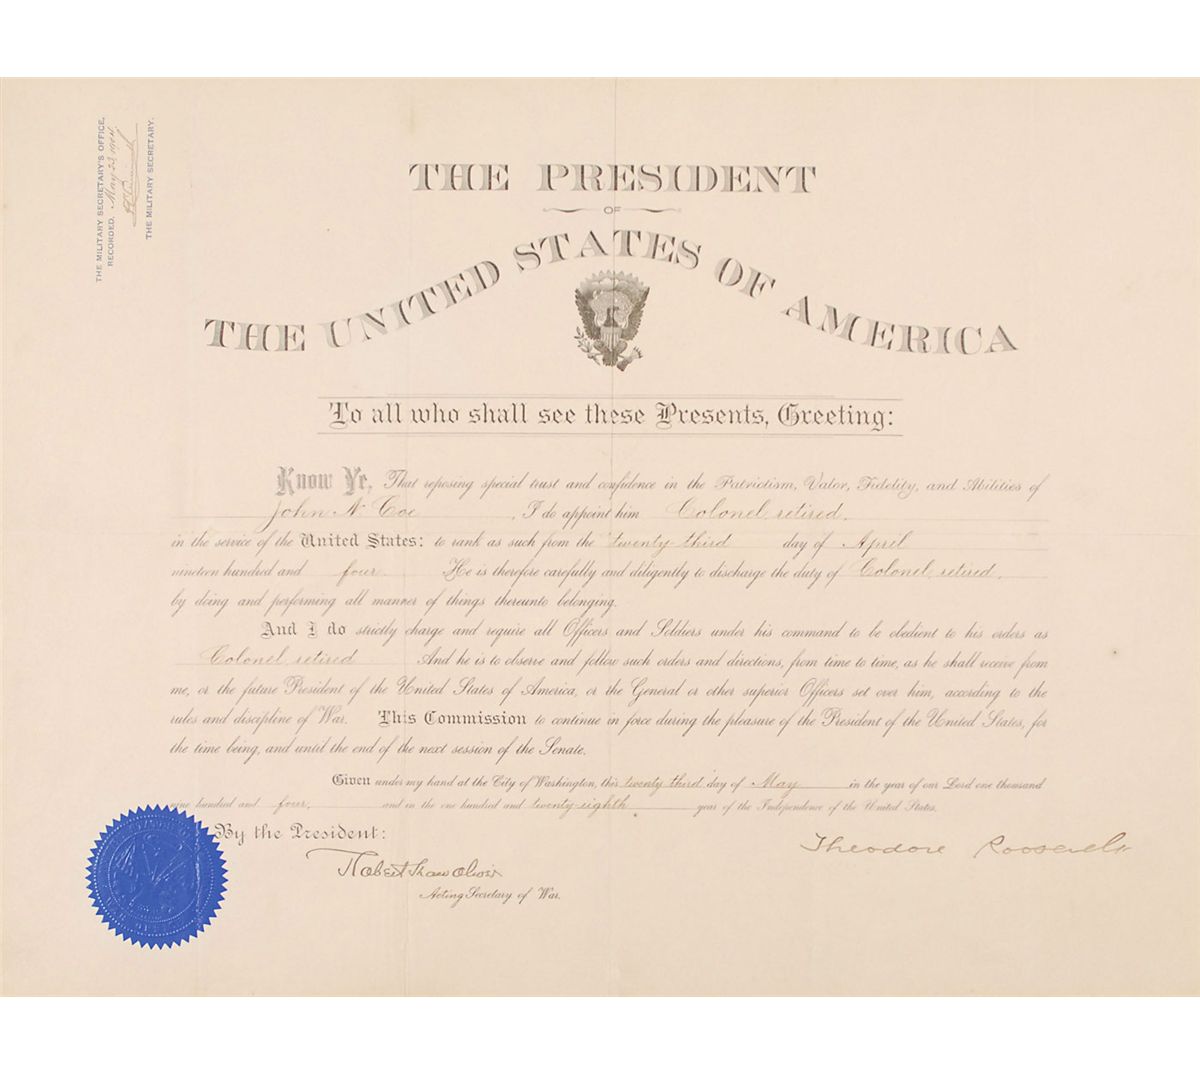 THE MILITARY SECRETARY'S OFFICE,
RECORDED, May 23 1904.
THE MILITARY SECRETARY.
THE PRESIDENT
OF
THE UNITED STATES OF AMERICA
To all who shall see these Presents, Greeting:
Know Ye, That reposing special trust and confidence in the Patriotism, Valor, Fidelity, and Abilities of
John N. Coe , I do appoint him Colonel, retired,
in the service of the United States: to rank as such from the twenty third day of April
nineteen hundred and four. He is therefore carefully and diligently to discharge the duty of Colonel, retired,
by doing and performing all manner of things thereunto belonging.
And I do strictly charge and require all Officers and Soldiers under his command to be obedient to his orders as
Colonel, retired And he is to observe and follow such orders and directions, from time to time, as he shall receive from
me, or the future President of the United States of America, or the General or other superior Officers set over him, according to the
rules and discipline of War. This Commission to continue in force during the pleasure of the President of the United States, for
the time being, and until the end of the next session of the Senate.
Given under my hand at the City of Washington, this twenty third day of May in the year of our Lord one thousand
nine hundred and four, and in the one hundred and twenty-eighth year of the Independence of the United States.
By the President:
Theodore Roosevelt
Robert Shaw Oliver
Acting Secretary of War.